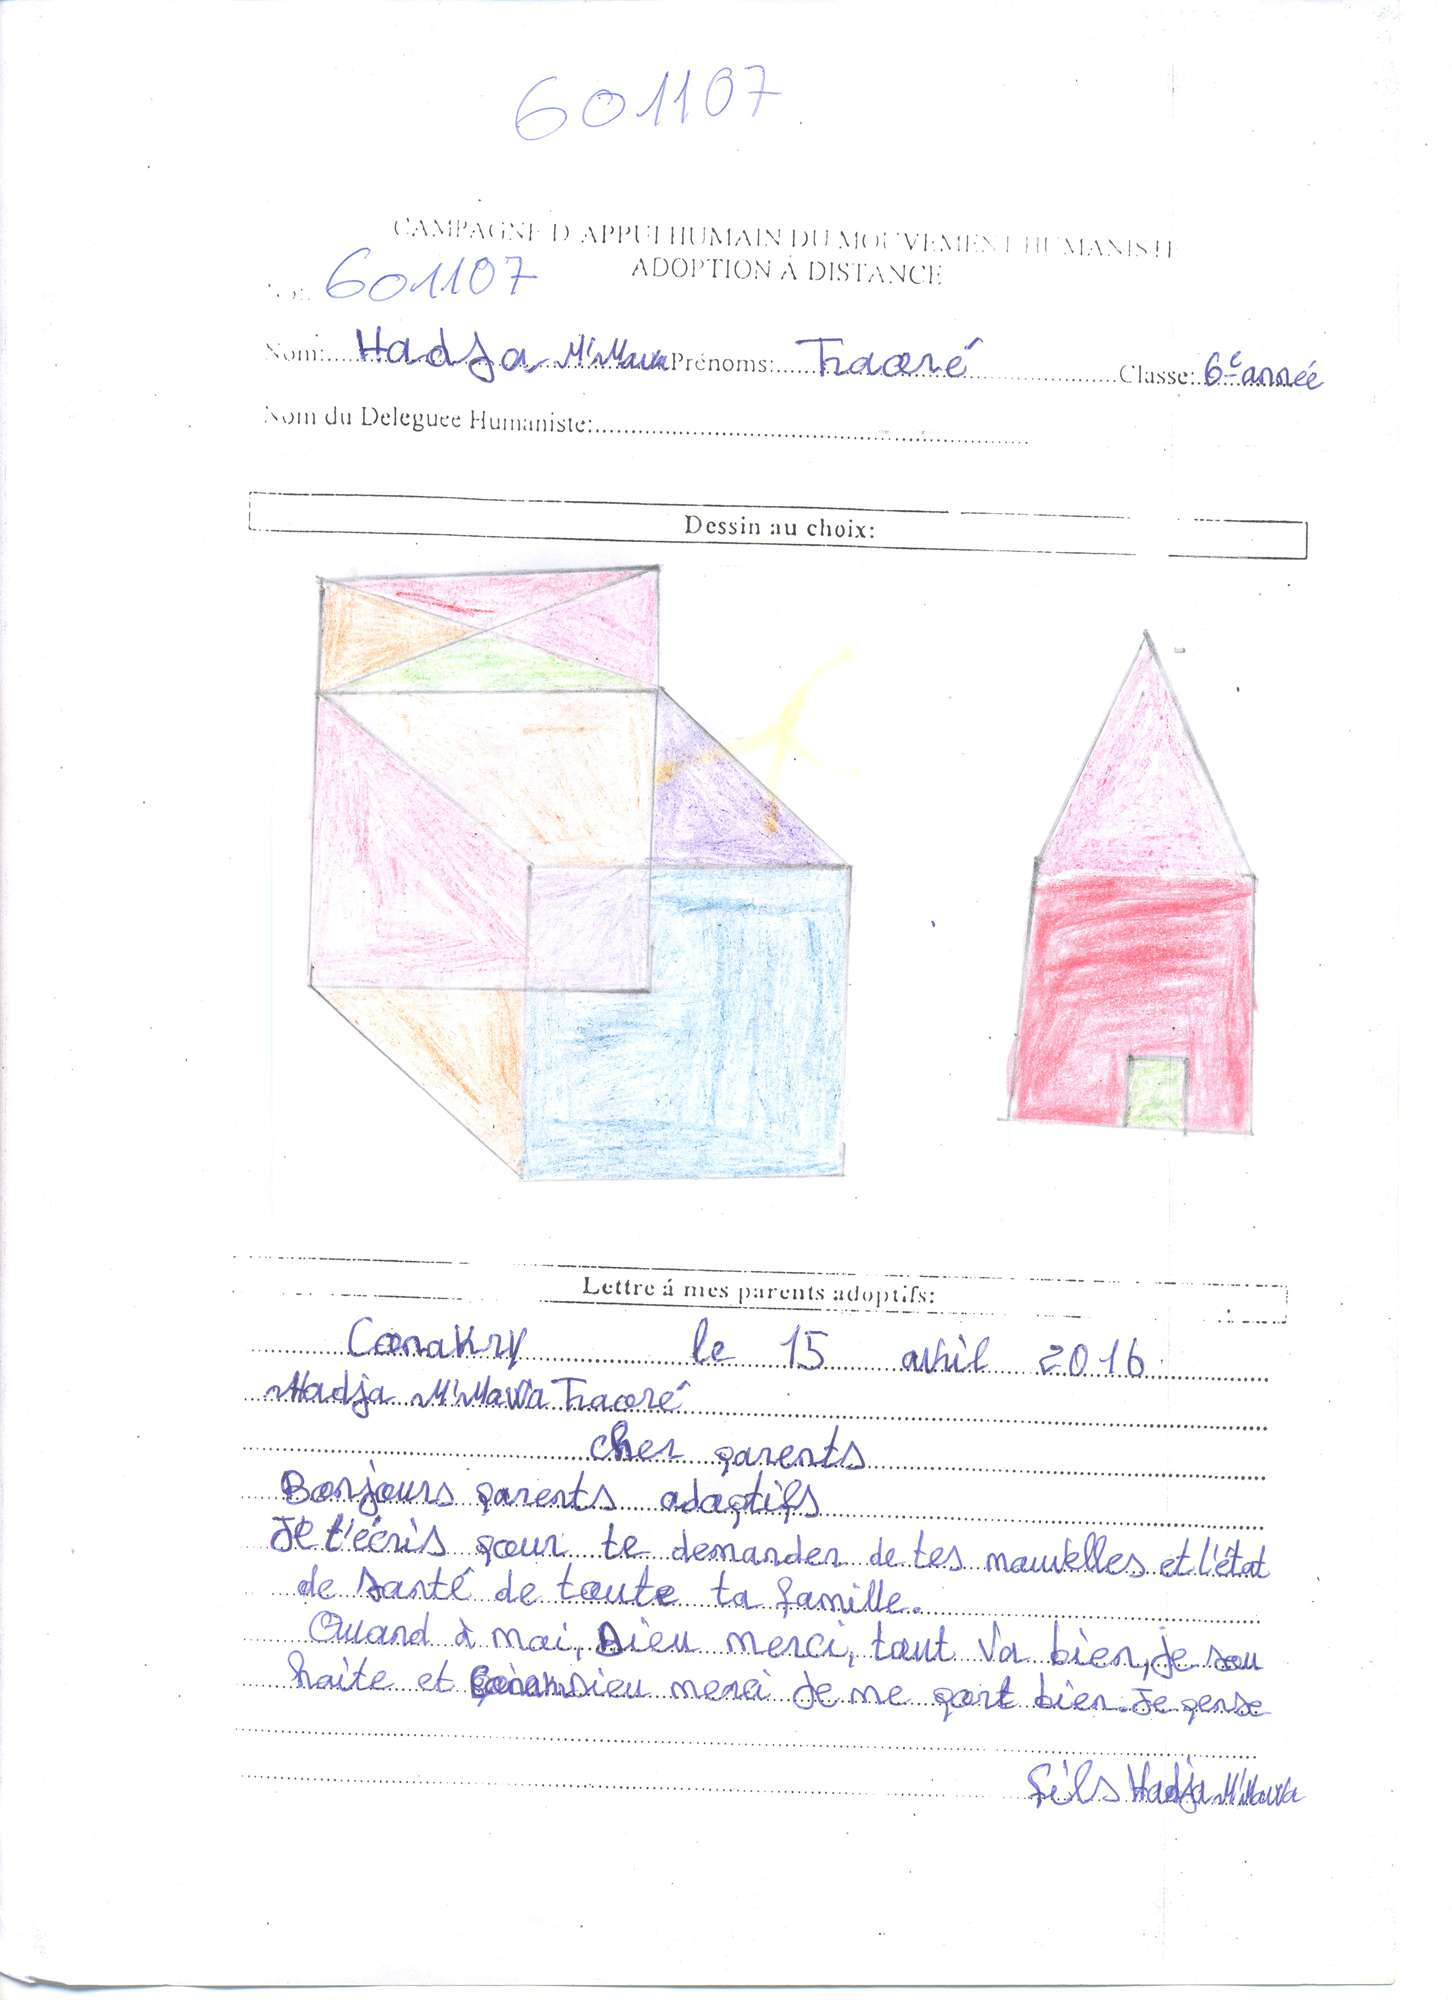 601107
CAMPAGNE D'APPUI HUMAIN DU MOUVEMENT HUMANISTE
ADOPTION Á DISTANCE
601107
Nom: Hadja M'Mawa Prénoms: Traoré Classe: 6e année
Nom du Deleguee Humaniste:
Dessin au choix:
Lettre á mes parents adoptifs:
Conakry le 15 avril 2016
Hadja M'Mawa Traoré
cher parents
Bonjours parents adoptifs
Je t'écris pour te demander de tes nouvelles et l'état
de santé de toute ta famille.
Quand à moi, Dieu merci, tout va bien, je sou
haite et Dieu merci je me port bien. Je pense
fils Hadja M'Mawa